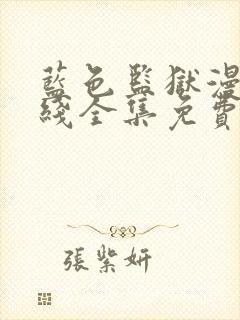 藍色監獄漫
綫全集免費
張紫妍